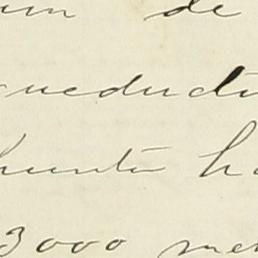 um de
queducto
punto ha
3000 me